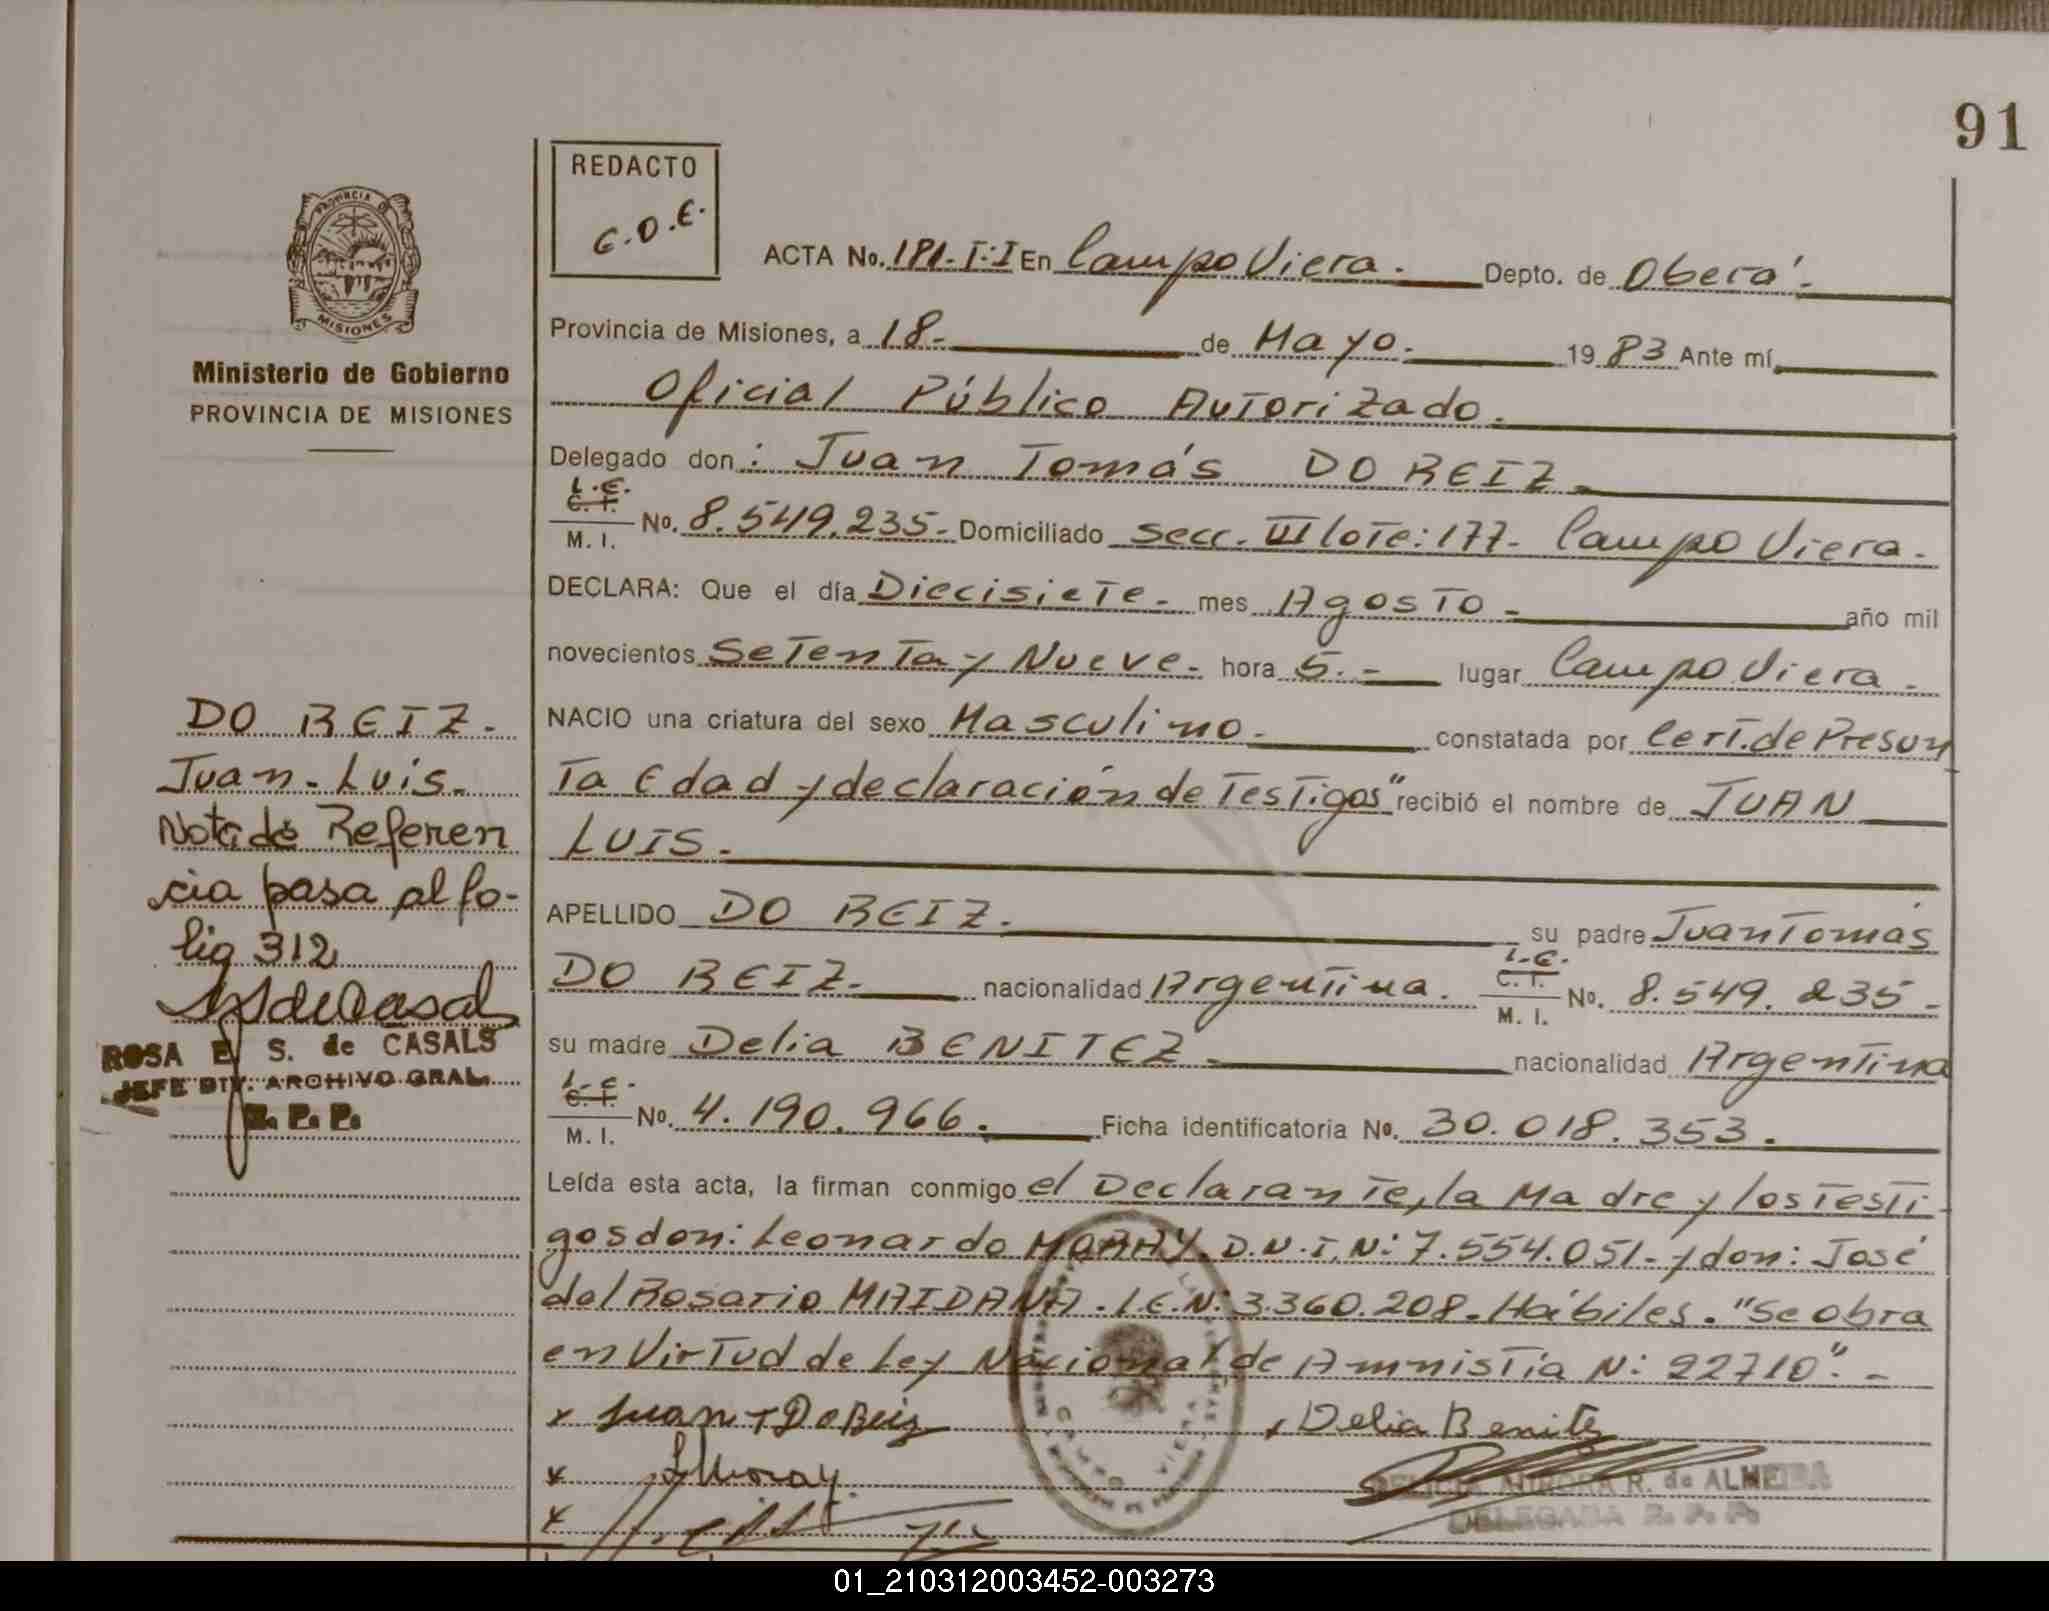 91
REDACTO
C.D.E.
PROVINCIA DE
MISIONES
Ministerio de Gobierno
PROVINCIA DE MISIONES
ACTA No. 181-T:I En Campo Viera.- Depto. de Oberá.-
Provincia de Misiones, a 18.- de Mayo.- 1983 Ante mí
Oficial Público Autorizado.
Delegado don: Juan Tomás DO REIZ.-
L.E.
C. I.
M. I.
No. 8.549.235.- Domiciliado Secc. III lote: 177- Campo Viera.-
DECLARA: Que el día Diecisiete.- mes Agosto.- año mil
novecientos Setenta y Nueve.- hora 5.- lugar Campo Viera.-
NACIO una criatura del sexo Masculino.- constatada por Cert. de Presun
ta Edad y declaración de Testigos" recibió el nombre de JUAN
LUIS.-
APELLIDO DO REIZ.- su padre Juan Tomás
DO REIZ.- nacionalidad Argentina.
L.E.
C. I.
M. I.
No. 8.549.235.-
su madre Delia BENITEZ.- nacionalidad Argentina
L.E.
C. I.
M. I.
No. 4.190.966.- Ficha identificatoria No. 30.018.353.
Leída esta acta, la firman conmigo el Declarante, la Madre y los testi
gos don: Leonardo MORAY. D.N.I.N: 7.554.051.- y don: José
del Rosario MAIDANA. L.E.N: 3.360.208. Hábiles. "Se obra
en Virtud de Ley Nacional de Amnistía N: 22710".-
x Juan T Do Reiz
x Delia Benitez
x LMoray
x
CAMPO VIERA
DELICIA AURORA R. de ALMEIDA
DELEGADA R. P. P.
DO REIZ.-
Juan-Luis.-
Nota de Referen
cia pasa al fo-
lio 312
ROSA E. S. de CASALS
JEFE DIV. ARCHIVO GRAL.
R. P. P.
01_210312003452-003273